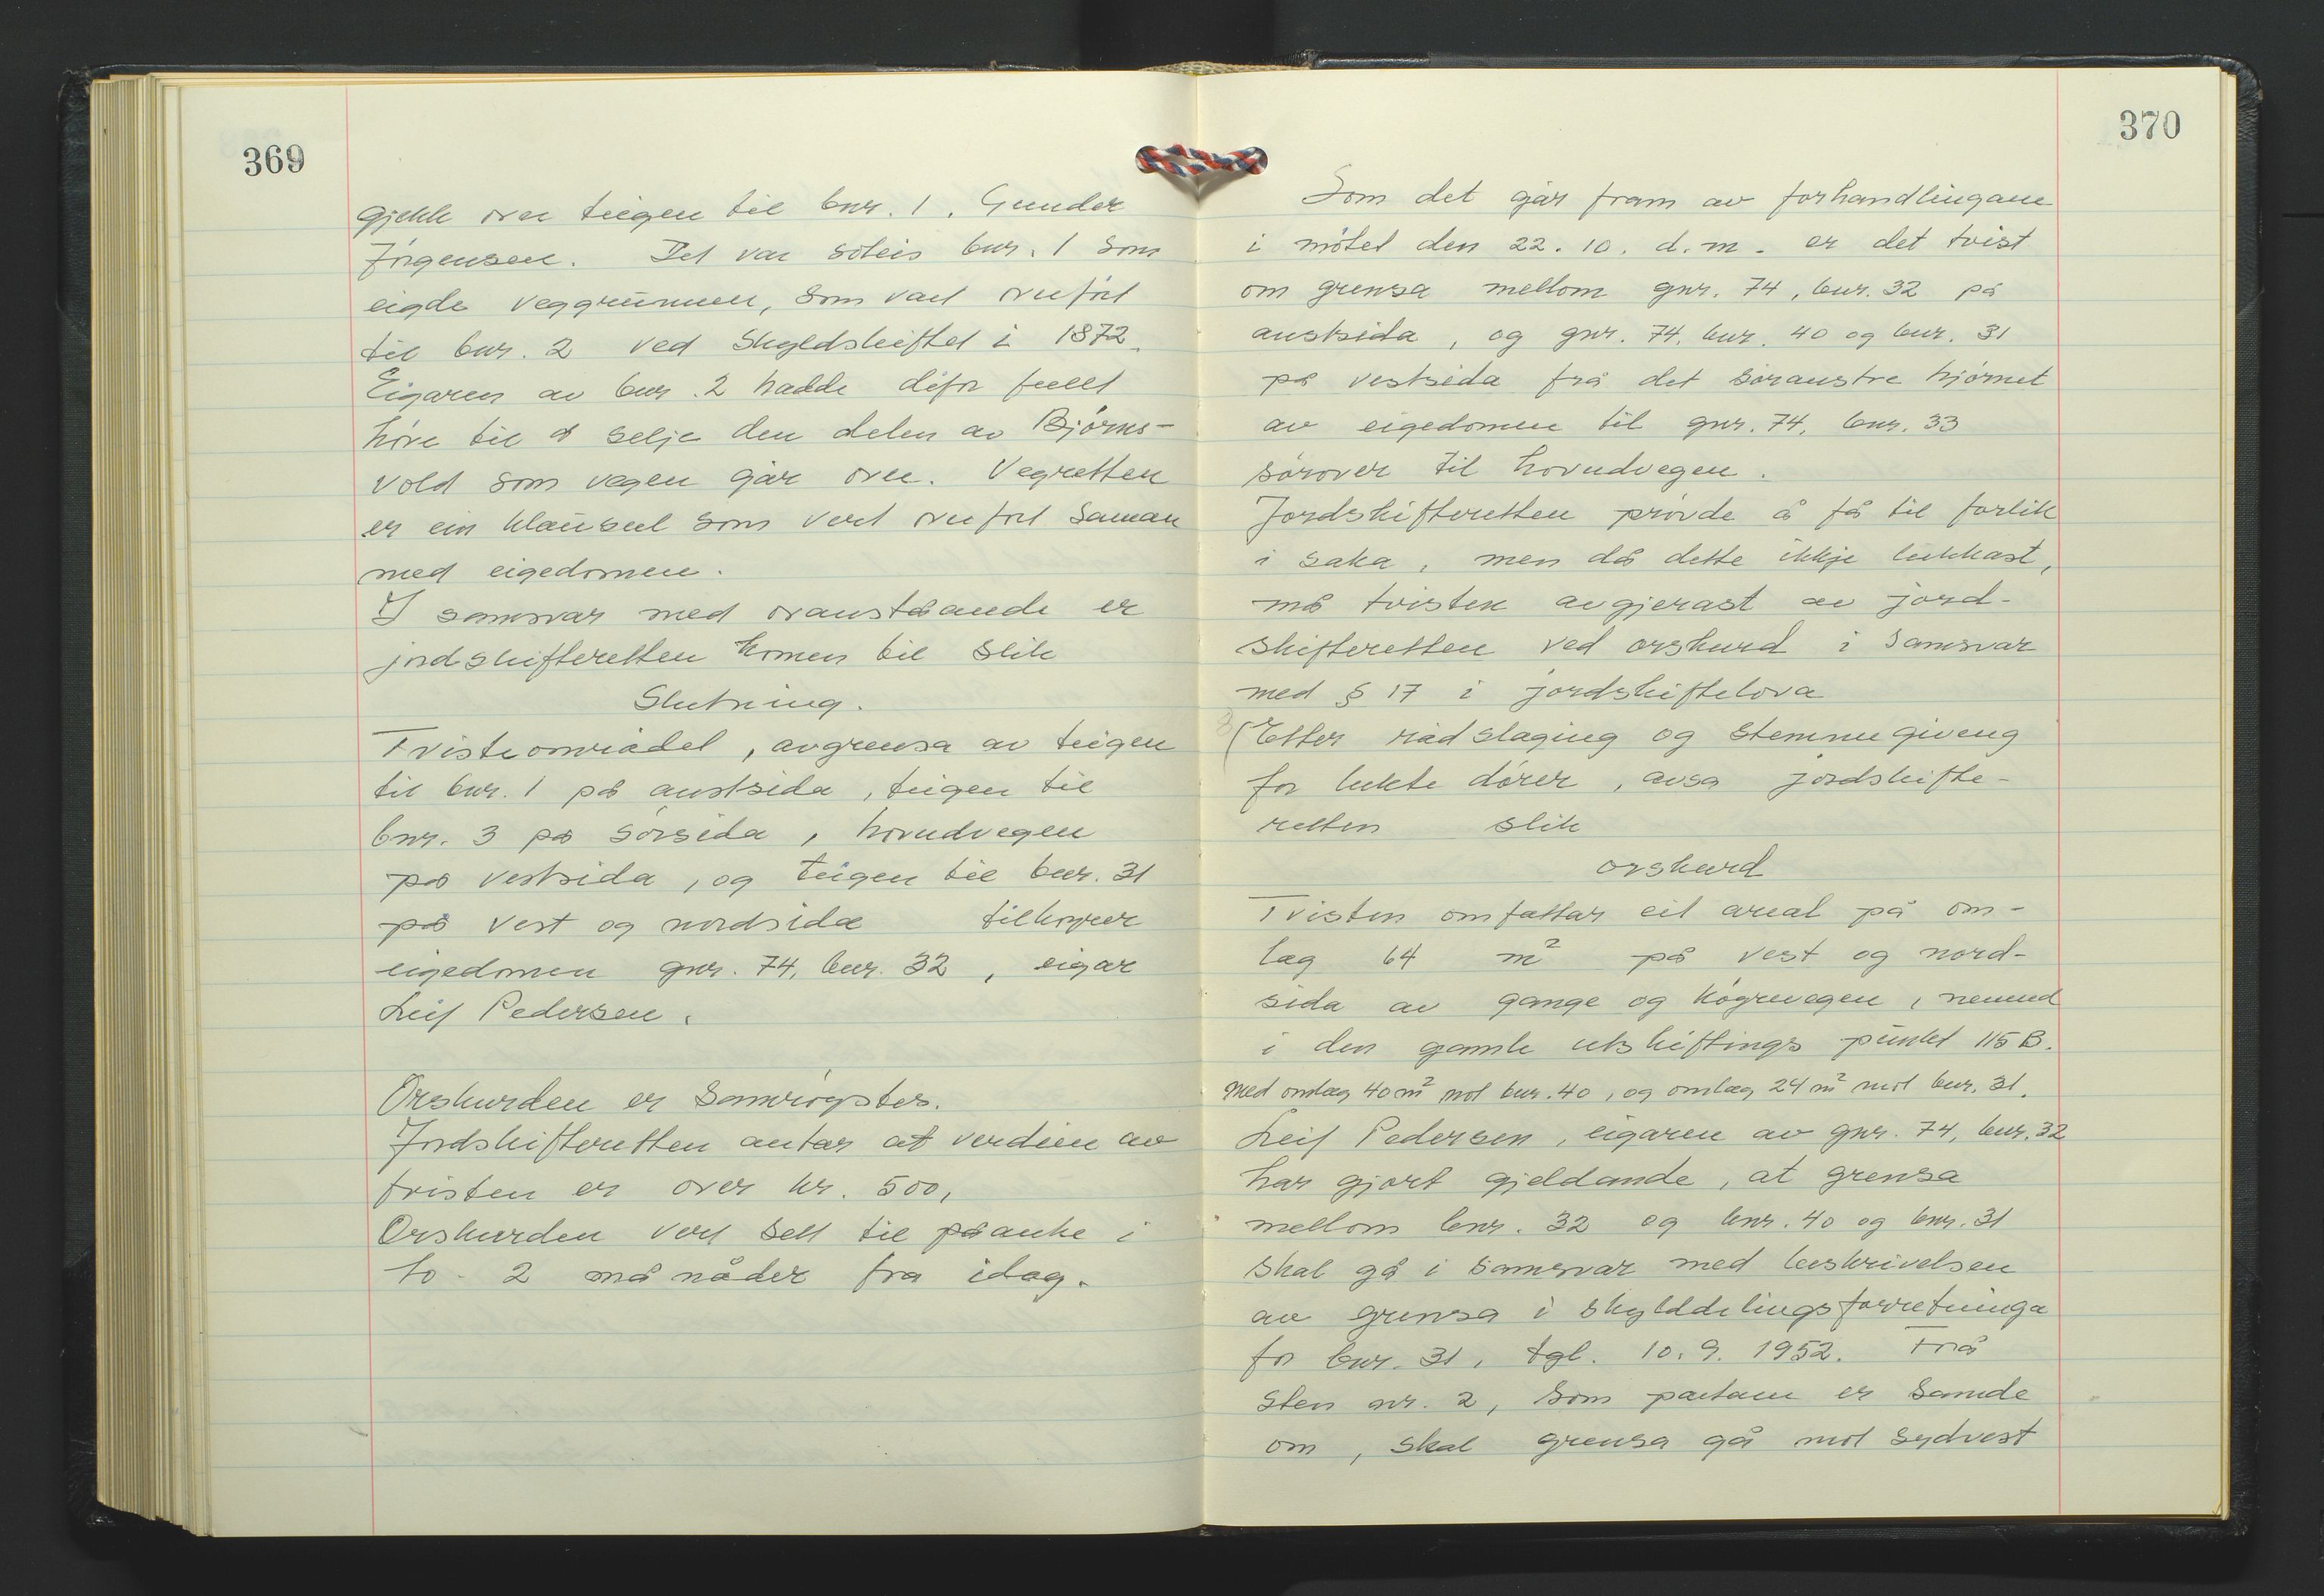 369
gjekk over teigen til bnr. 1, Gunder
Jörgensen. Det var soleis bnr. 1 som
eigde veggrunnen, som vart overfört
til bnr. 2 ved Skyldskiftet i 1872.
Eigaren av bnr. 2 hadde difor fullt
höve til å selje den delen av Bjørns-
vold som vegen går over. Vegretten
er ein klausul som vert overfört saman
med eigedomen.
I samsvar med ovanståande er
jordskifteretten komen til slik
Slutning.
Tvisteområdet, avgrensa av teigen
til bnr. 1 på austsida, teigen til
bnr. 3 på sörsida, hovudvegen
på vestsida, og teigen til bnr. 31
på vest og nordsida tilhoyrer
eigedomen gnr. 74, bnr. 32, eigar
Leif Pedersen.
Orskurden er samröystes.
Jordskifteretten antar at verdien av
tvisten er over kr. 500,
Orskurden vert sett til påanke i
to - 2 månåder fra idag.
370
Som det går fram av forhandlingane
i mötet den 22. 10. d. m. er det tvist
om grensa mellom gnr. 74, bnr. 32 på
austsida, og gnr. 74, bnr. 40 og bnr. 31
på vestsida frå det söraustre hjörnet
av eigedomen til gnr. 74, bnr. 33
sörover til hovudvegen.
Jordskifteretten prövde å få til forlik
i saka, men då dette ikkje lukkast,
må tvisten avgjerast av jord-
skifteretten ved orskurd i samsvar
med § 17 i jordskiftelova
(Etter rådslaging og stemmegiveng
for lukte dörer, avsa jordskifte-
retten slik
orskurd
Tvisten omfattar eit areal på om-
lag 64 m² på vest og nord-
sida av gange og kögrevegen, nemnd
i den gamle utskiftings punkt 115 B.
med omlag 40 m² mot bnr. 40, og omlag 24 m² mot bnr. 31.
Leif Pedersen, eigaren av gnr. 74, bnr. 32
har gjort gjeldande, at grensa
mellom bnr. 32 og bnr. 40 og bnr. 31
skal gå i samsvar med beskrivelsen
av grensa i skylddelingsforretninga
for bnr. 31, tgl. 10. 9. 1952. Frå
sten nr. 2, som partane er samde
om, skal grensa gå mot sydvest